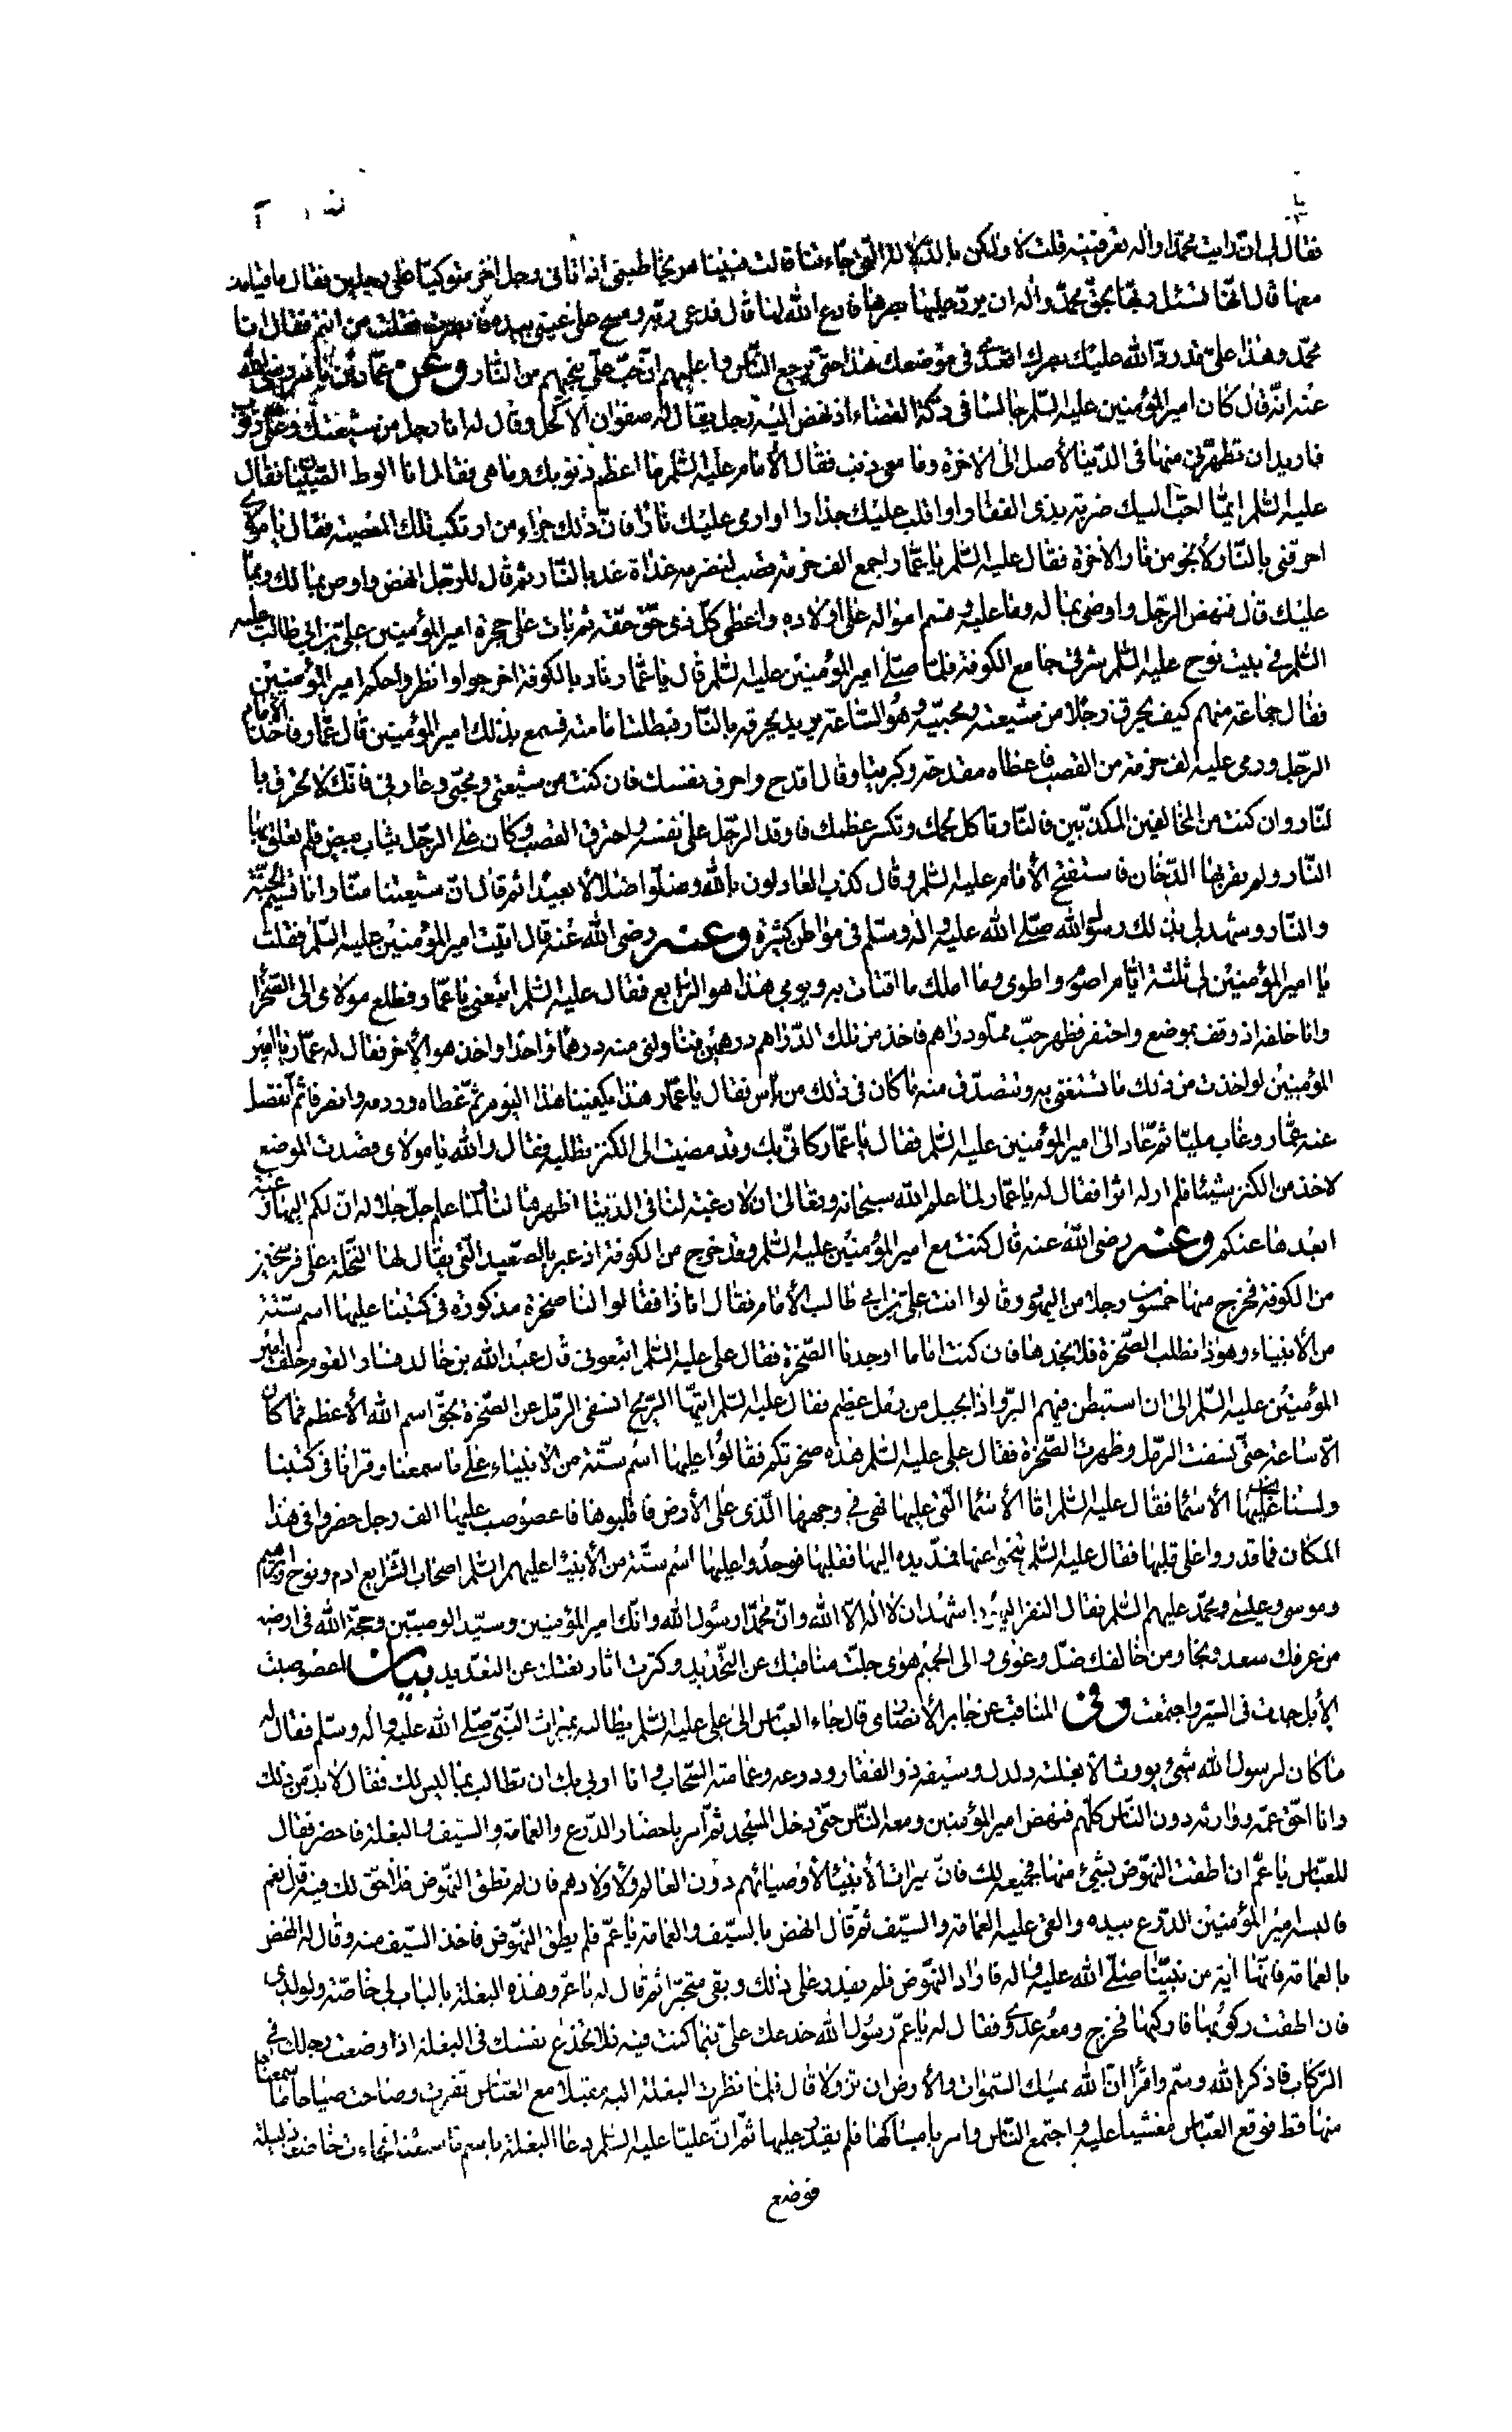 فقال لى ان رايت محمدا واله تعرفينه قلت لا ولكن بالدلالة التى جاءتنا قالت فبينا هى تخاطبنى اذ اتانى رجل اخر متوكيا على رجلين فقال ما قيامك
معها قال انها تسئل ربها بحق محمد واله ان يرد عليها بصرها فادع الله لنا قال فدعى ربه ومسح على عينى بيده فابصرت فقلت من انتم فقال انا
محمد وهذا على قد رد الله عليك بصرك اقعدى فى موضعك هذا حتى يرجع الناس واعلميهم ان حب على ينجيهم من النار وعن عمار بن ياسر رضى الله
عنه انه قال كان امير المؤمنين عليه السلم جالسا فى دكة القضاء اذ نهض اليه رجل يقال له صفوان الاكحل وقال له انا رجل من شيعتك وعلى ذنوب
فاريد ان تطهرنى منها فى الدنيا لاصل الى الاخرة وما معى ذنب فقال الامام عليه السلم ما اعظم ذنوبك وما هى فقال انا الوط الصبيان فقال
عليه السلم ايما احب اليك ضربة بذى الفقار او اقلب عليك جدارا او ارمى عليك نارا فان ذلك جزاء من ارتكب تلك المعصية فقال يا مولاى
احرقنى بالنار لانجو من نار الاخرة فقال عليه السلم يا عمار اجمع الف حزمة قصب لنضرمه غداة غد بالنار ثم قال للرجل انهض واوص بما لك وبما
عليك قال فنهض الرجل واوصى بما له وما عليه وقسم امواله على اولاده واعطى كل ذى حق حقه ثم بات على حجرة امير المؤمنين على بن ابى طالب عليه
السلم فى بيت نوح عليه السلم شرقى جامع الكوفة فلما صلى امير المؤمنين عليه السلم قال يا عمار ناد بالكوفة اخرجوا وانظروا حكم امير المؤمنين
فقال جماعة منهم كيف يحرق رجلا من شيعته ومحبيه وهو الساعة يريد يحرقه بالنار فبطلت امامته فسمع بذلك امير المؤمنين قال عمار فاخذ الامام
الرجل ورمى عليه الف حزمة من القصب فاعطاه مقدحة وكبريتا وقال اقدح واحرق نفسك فان كنت من شيعتى ومحبى وعارفى فانك لا تحرق با
لنار وان كنت من المخالفين المكذبين فالنار تاكل لحمك وتكسر عظمك فاوقد الرجل على نفسه واحترق القصب وكان على الرجل ثياب بيض فلم تعلق بها
النار ولم يقربها الدخان فاستفتح الامام عليه السلم وقال كذب العادلون بالله وضلوا ضلالا بعيدا ثم قال ان شيعتنا منا وانا قسيم الجنة
والنار وشهد لى بذلك رسول الله صلى الله عليه واله وسلم فى مواطن كثيرة وعنه رضى الله عنه قال اتيت امير المؤمنين عليه السلم فقلت
يا امير المؤمنين لى ثلثة ايام اصوم واطوى وما املك ما اقتات به ويومى هذا هو الرابع فقال عليه السلم اتبعنى يا عمار فطلع مولاى الى الصحرا
وانا خلفه اذ وقف بموضع واحتفر فظهر حب مملو دراهم فاخذ من تلك الدراهم درهمين فناولنى منه درهما واحدا واخذ هو الاخر فقال له عمار يا امير
المؤمنين لو اخذت من ذلك ما تستغنى به وتتصدق منه ما كان فى ذلك من باس فقال يا عمار هذا يكفينا هذا اليوم ثم غطاه وردمه وانصرفا ثم انفصل
عنه عمار وغاب مليا ثم عاد الى امير المؤمنين عليه السلم فقال يا عمار كانى بك وقد مضيت الى الكنز تطلبه فقال والله يا مولاى قصدت الموضع
لاخذ من الكنز شيئا فلم ار له اثرا فقال له يا عمار لما علم الله سبحانه وتعالى ان لا رغبة لنا فى الدنيا اظهرها لنا ولما علم جل جلاله ان لكم اليها رغبة
ابعدها عنكم وعنه رضى الله عنه قال كنت مع امير المؤمنين عليه السلم وقد خرج من الكوفة اذ عبر بالصعيد التى يقال لها النخلة على فرسخين
من الكوفة فخرج منها خمسون رجلا من اليهود وقالوا انت على بن ابى طالب الامام فقال انا ذا فقالوا لنا صخرة مذكورة فى كتبنا عليها اسم ستة
من الانبياء وهو ذا نطلب الصخرة فلا نجدها فان كنت اماما اوجدنا الصخرة فقال على عليه السلم اتبعونى قال عبد الله بن خالد فسار القوم خلف امير
المؤمنين عليه السلم الى ان استبطن فيهم البر واذا بجبل من رمل عظيم فقال عليه السلم ايتها الريح انسفى الرمل عن الصخرة بحق اسم الله الاعظم فما كان
الا ساعة حتى نسفت الرمل وظهرت الصخرة فقال على عليه السلم هذه صخرتكم فقالوا عليها اسم ستة من الانبياء على ما سمعنا وقرانا فى كتبنا
ولسنا نرى عليها الاسماء فقال عليه السلم اما الاسماء التى عليها فهى فى وجهها الذى على الارض فاقلبوها فاعصوصب عليها الف رجل حضروا فى هذا
المكان فما قدروا على قلبها فقال عليه السلم تنحوا عنها فمد يده اليها فقلبها فوجدوا عليها اسم ستة من الانبياء عليهم السلم اصحاب الشرايع ادم ونوح وابراهيم
وموسى وعيسى ومحمد عليهم السلم فقال النفر اليهود اشهد ان لا اله الا الله وان محمدا رسول الله وانك امير المؤمنين وسيد الوصيين وحجة الله فى ارضه
من عرفك سعد ونجا ومن خالفك ضل وغوى والى الجحيم هوى جلت مناقبك عن التحديد وكثرت اثار نعتك عن التعديد بيان اعصوصبت
الابل جدت فى السير واجتمعت وفى المناقب عن جابر الانصارى قال جاء العباس الى على عليه السلم يطالبه بميراث النبى صلى الله عليه واله وسلم فقال له
ما كان لرسول الله شئ يورث الا بغلته دلدل وسيفه ذو الفقار ودرعه وعمامته السحاب وانا اربى بك ان تطالب بما ليس لك فقال لا بد من ذلك
وانا احق عمه ووارثه دون الناس كلهم فنهض امير المؤمنين ومعه الناس حتى دخل المسجد ثم امر باحضار الدرع والعمامة والسيف والبغلة فاحضر فقال
للعباس يا عم ان اطقت النهوض بشئ منها فجميعه لك فان ميراث الانبياء لاوصيائهم دون العالم ولاولادهم فان لم تطق النهوض فلا حق لك فيه قال نعم
فالبسه امير المؤمنين الدرع بيده والقى عليه العمامة والسيف ثم قال انهض بالسيف والعمامة يا عم فلم يطق النهوض فاخذ السيف منه وقال له انهض
بالعمامة فانها اية من نبينا صلى الله عليه واله فاراد النهوض فلم يقدر على ذلك وبقى متحيرا ثم قال له يا عم وهذه البغلة بالباب لى خاصة ولولدى
فان اطقت ركوبها فاركبها فخرج ومعه عدوى فقال له يا عم رسول الله خدعك على فيما كنت فيه فلا تخدع نفسك فى البغلة اذا وضعت رجلك فى
الركاب فاذكر الله وسم واقرا ان الله يمسك السموات والارض ان تزولا قال فلما نظرت البغلة اليه مقبلا مع العباس نفرت وصاحت صياحا ما سمعناه
منها قط فوقع العباس مغشيا عليه واجتمع الناس وامر بامساكها فلم يقدر عليها ثم ان عليا عليه السلم دعا البغلة باسم ما سمعناه فجاءت خاضعة ذليلة
فوضع